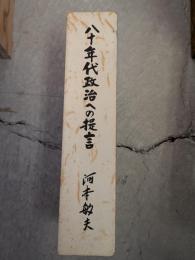 八十年代政治への提言
河本敏夫